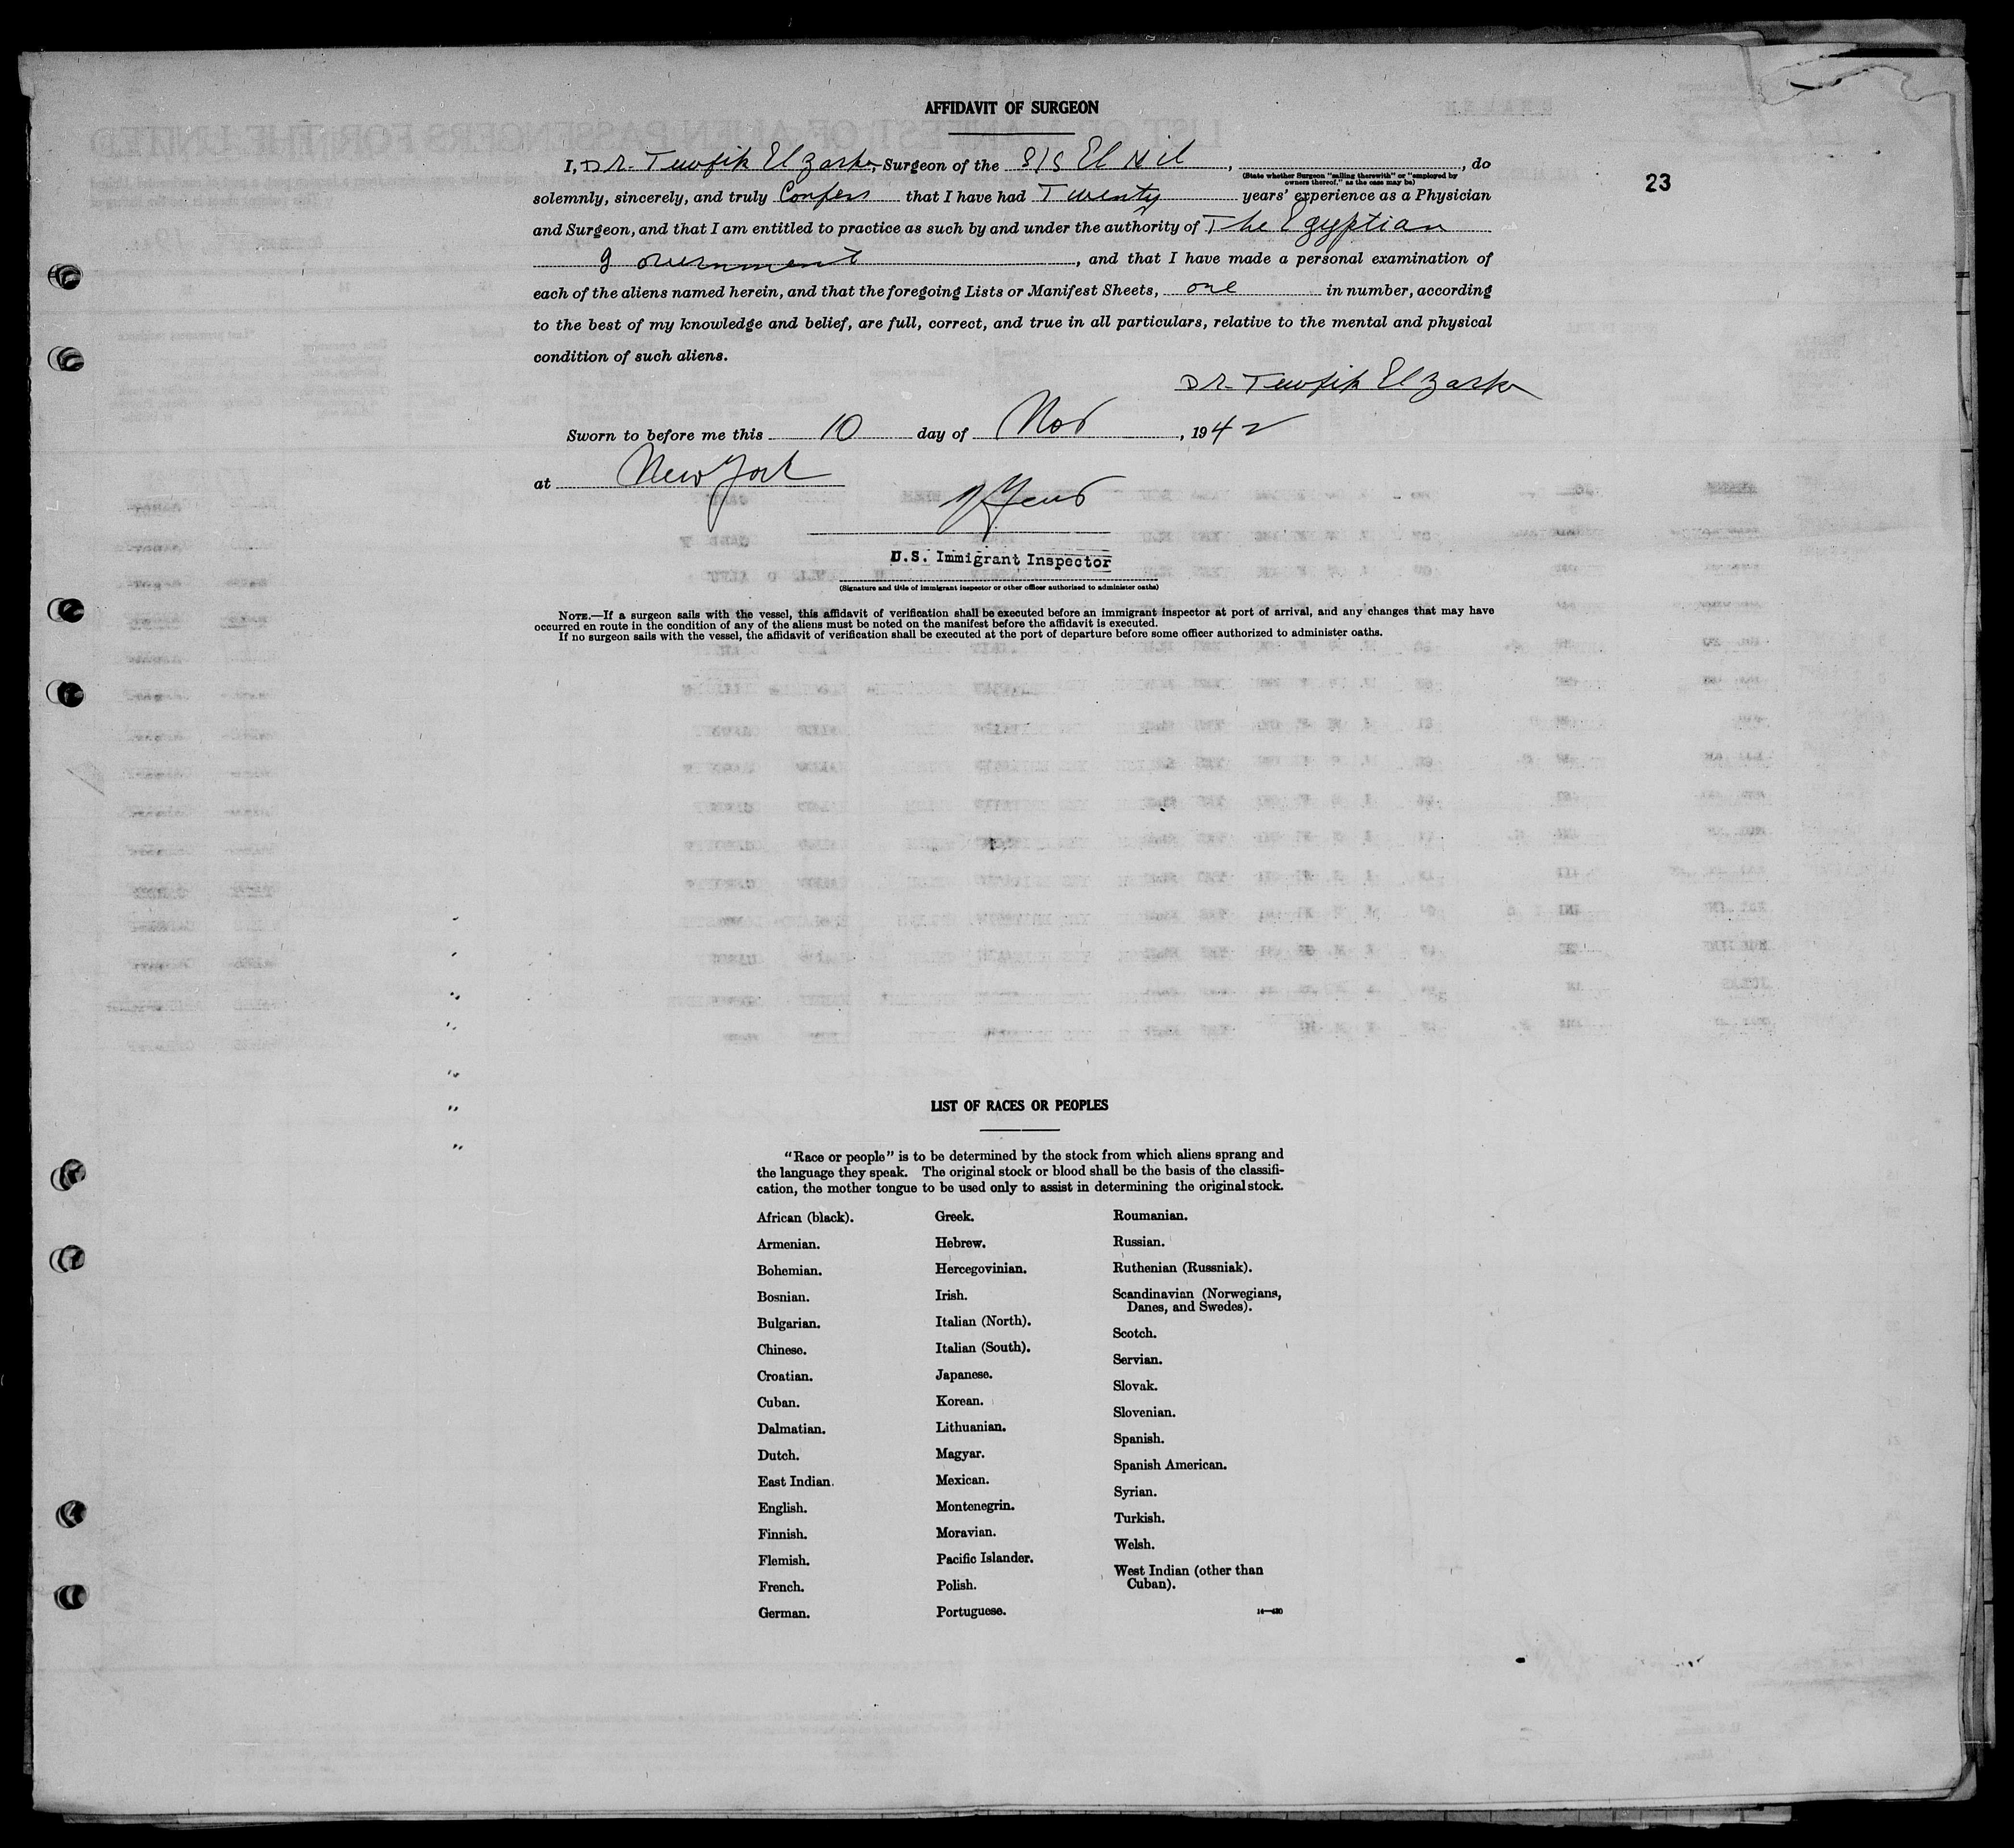 AFFIDAVIT OF SURGEON
23
I, Dr. Tewfik El Zarka, Surgeon of the S/S El Nil, , do
(State whether Surgeon "sailing therewith" or "employed by
owners thereof," as the case may be)
solemnly, sincerely, and truly Confess that I have had Twenty years' experience as a Physician
and Surgeon, and that I am entitled to practice as such by and under the authority of The Egyptian
government, and that I have made a personal examination of
each of the aliens named herein, and that the foregoing Lists or Manifest Sheets, one in number, according
to the best of my knowledge and belief, are full, correct, and true in all particulars, relative to the mental and physical
condition of such aliens.
Dr. Tewfik El Zarka
Sworn to before me this 10 day of Nov, 1942
at New York
U.S. Immigrant Inspector
(Signature and title of immigrant inspector or other officer authorized to administer oaths)
NOTE.—If a surgeon sails with the vessel, this affidavit of verification shall be executed before an immigrant inspector at port of arrival, and any changes that may have
occurred en route in the condition of any of the aliens must be noted on the manifest before the affidavit is executed.
If no surgeon sails with the vessel, the affidavit of verification shall be executed at the port of departure before some officer authorized to administer oaths.
LIST OF RACES OR PEOPLES
"Race or people" is to be determined by the stock from which aliens sprang and
the language they speak. The original stock or blood shall be the basis of the classifi-
cation, the mother tongue to be used only to assist in determining the original stock.
African (black).
Armenian.
Bohemian.
Bosnian.
Bulgarian.
Chinese.
Croatian.
Cuban.
Dalmatian.
Dutch.
East Indian.
English.
Finnish.
Flemish.
French.
German.
Greek.
Hebrew.
Hercegovinian.
Irish.
Italian (North).
Italian (South).
Japanese.
Korean.
Lithuanian.
Magyar.
Mexican.
Montenegrin.
Moravian.
Pacific Islander.
Polish.
Portuguese.
Roumanian.
Russian.
Ruthenian (Russniak).
Scandinavian (Norwegians,
Danes, and Swedes).
Scotch.
Servian.
Slovak.
Slovenian.
Spanish.
Spanish American.
Syrian.
Turkish.
Welsh.
West Indian (other than
Cuban).